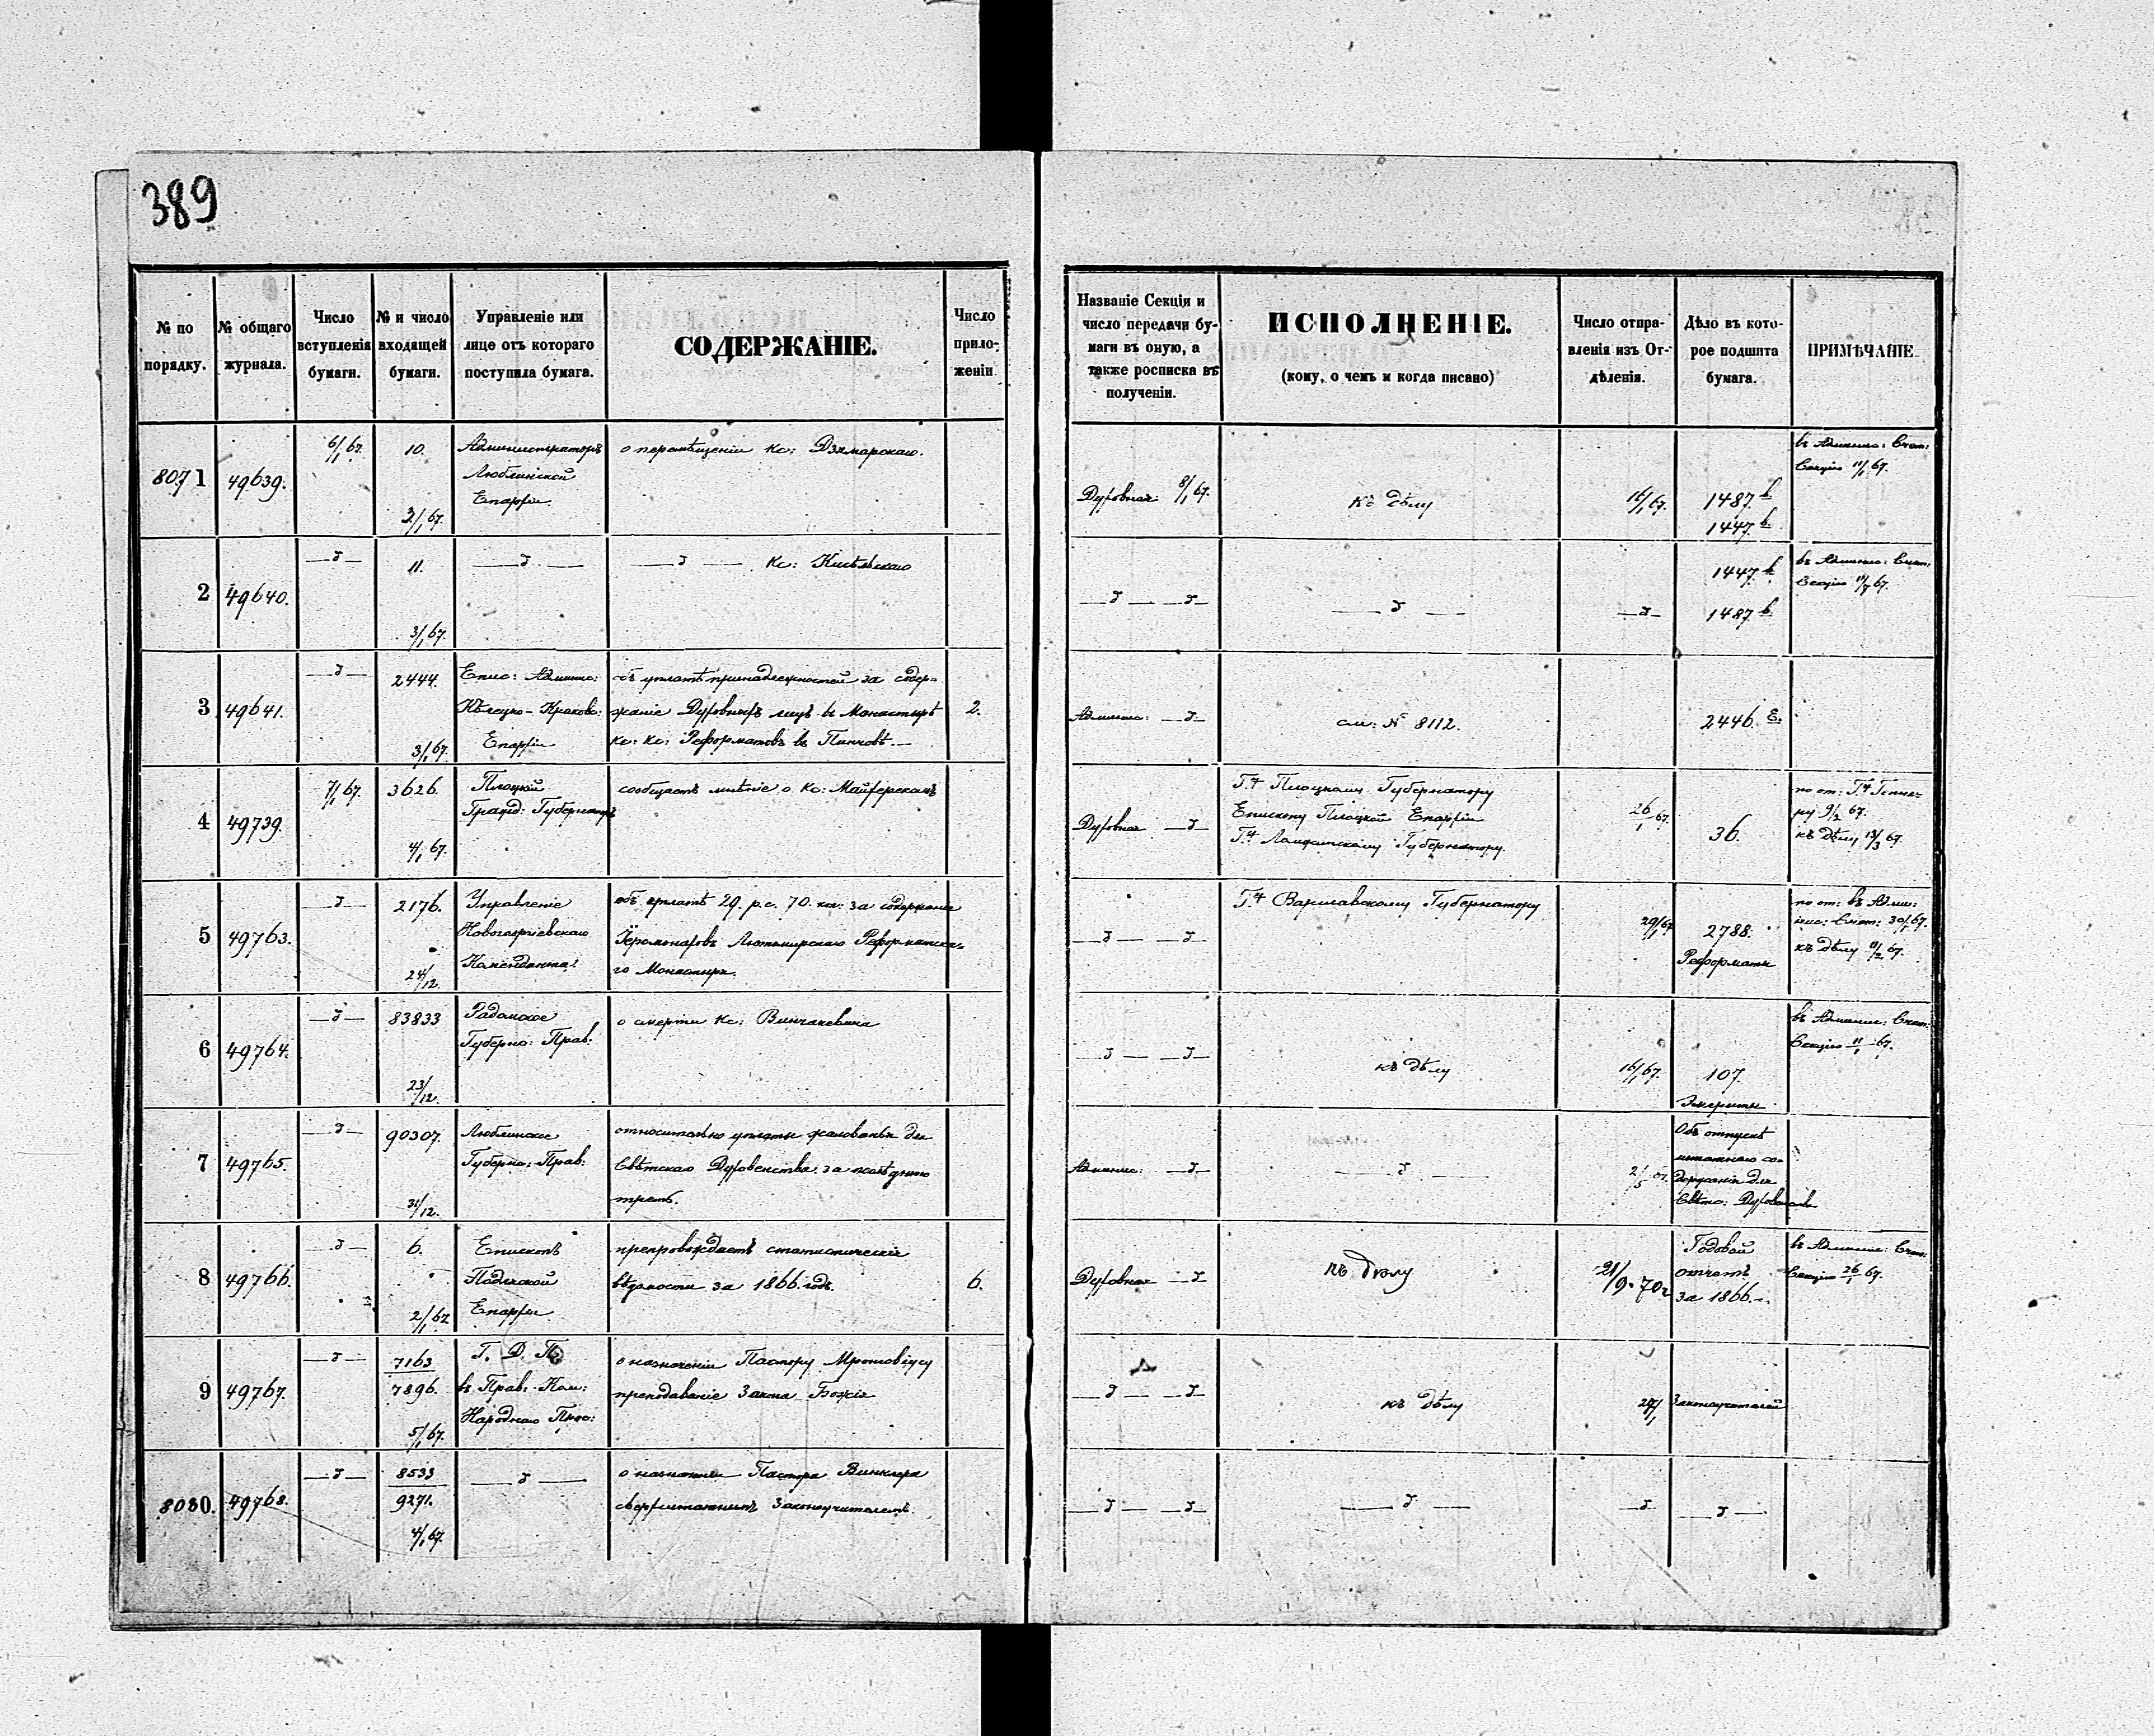 389
№ по порядку.
№ общаго журнала.
Число вступленія бумаги.
№ и число входящей бумаги.
Управленіе или лице отъ котораго поступила бумага.
СОДЕРЖАНІЕ.
Число прило-
женіи.
Названіе Секціи и
число передачи бу-
маги въ оную, а
также росписка въ
полученіи.
ИСПОЛНЕНІЕ.
(кому, о чемъ и когда писано)
Число отпра-
вленія изъ От-
дѣленія.
Дѣло въ кото-
рое подшита
бумага.
ПРИМѢЧАНІЕ.
8071
49639.
6/1 67.
10.
3/1 67.
Администраторъ
Люблинской
Епархіи
о перемѣщеніи Кс:
Духовная 8/1 67.
Къ дѣлу
16/1 67.
1487 b
1447 b
въ Админис: Счет:
Секцію 11/1 67.
2
49640.
11.
3/1 67.
Кс:
1447 b
1487 b
въ Админис: Счет:
Секцію 67.
3
49641.
2444.
3/1 67.
Епис: Админис:
Кѣлецко-Краковс:
Епархіи
объ уплатѣ принадлежностей за содер-
жаніе Духовныхъ лицъ въ Монастырѣ
Кс: Кс: Реформатовъ въ Пинчовѣ.
2.
Админис:
см: № 8112.
2446 Е.
4
49739.
7/1 67.
3626.
4/1 67.
Плоцкій
Гражд: Губернаторъ
сообщаетъ мнѣніе о Кс:
Духовная
Г. Плоцкому Губернатору
Епископу Плоцкой Епархіи
Г. Губернатору.
26/1 67.
36.
9/2 67.
къ дѣлу 13/3 67.
5
49763.
2176.
24/12.
Управленіе
Новогеоргіевскаго
Коменданта
объ уплатѣ 29. р.с. 70. коп: за содержаніе
Іеромонаховъ Реформатска-
го Монастыря.
Г. Варшавскому Губернатору
29/1 67
2788.
Реформаты
по от: въ Адми-
нис: Счет: 30/1 67.
къ дѣлу 67.
6
49764.
83833
23/12.
Радомское
Губерно: Прав:
о смерти Кс: Винчакевича
къ дѣлу
16/1 67.
107.
Эмериты
въ Админис: Счет:
Секцію 11/1 67.
7
49765.
90307.
31/12.
Люблинское
Губерно: Прав:
относительно уплаты жалованья для
Свѣтскаго Духовенства за послѣднюю
треть.
Админис:
Объ отпускѣ
штатнаго со-
держанія для
Свѣтс: Духовенства
8
49766.
6.
2/1 67
Епископъ
Подляской
Епархіи
препровождаетъ статистическія
вѣдомости за 1866. годъ.
6.
Духовная
къ дѣлу
21/9 70 г
Годовой
отчетъ
за 1866.
въ Админис: Счет:
Секцію 26/1 67.
9
49767.
7163
7896.
5/1 67.
Г. Д. П.
въ Прав: Ком:
Народнаго Прос:
о назначеніи Пастору
преподаваніе Закона Божія
къ дѣлу
Законоучителей
8080.
49768.
8533
9271.
4/1 67.
о назначеніи Пастора Винклера
сверхштатнымъ Законоучителемъ.